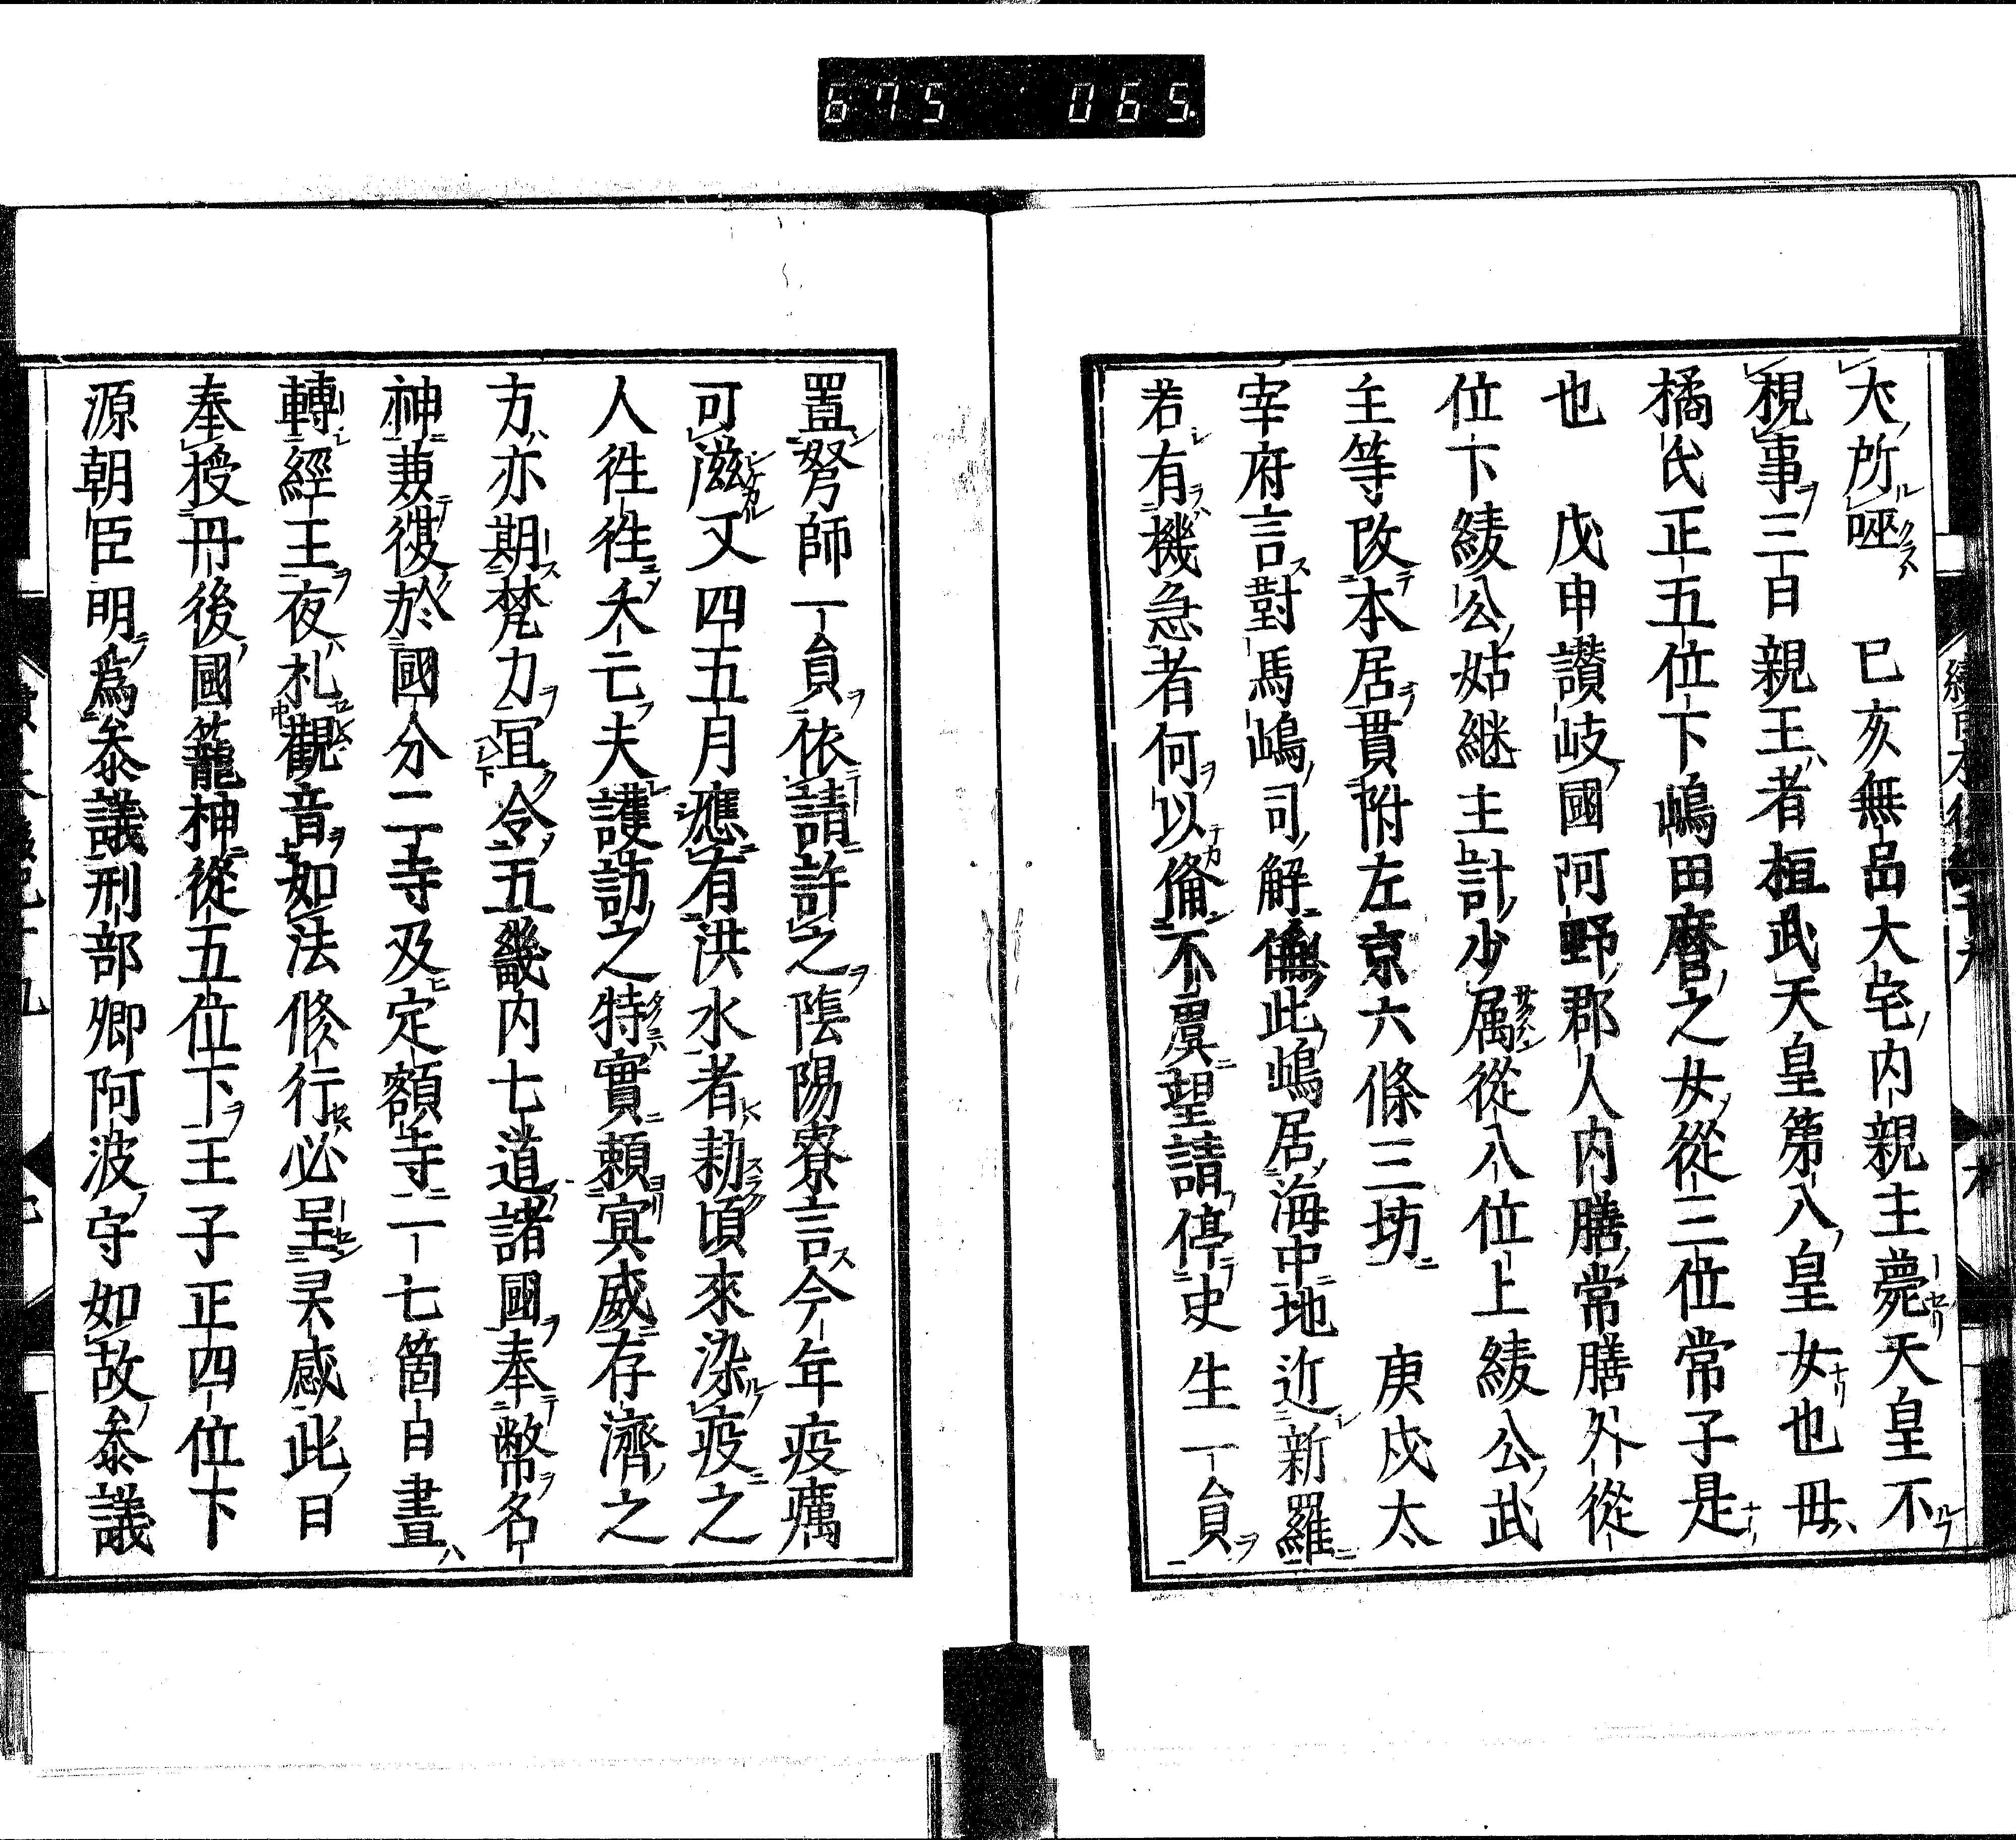 675 065
大所唖　已亥無品大宅内親王薨天皇不
視事三日親王者桓武天皇第八皇女也母
橘氏正五位下嶋田麿之女從三位常子是
也　戊申讃岐國阿野郡人内膳常膳外從
位下綾公姑継主計少属從八位上綾公武
主等改本居貫附左京六條三坊　庚戌太
宰府言對馬嶋司解偁此嶋居海中地近新羅
若有機急者何以備不虞望請停史生一員
置弩師一員依請許之陰陽寮言今年疫癘
可滋又四五月應有洪水者勅頃來染疫之
人徃徃夭亡夫護訪之特實頼冥威存濟之
方亦期梵力冝令五畿内七道諸國奉幣名
神兼復於國分二寺及定額寺一七箇日晝
轉經王夜礼觀音如法修行必呈灵感此日
奉授丹後國籠神從五位下王子正四位下
源朝臣明爲叅議刑部卿阿波守如故叅議